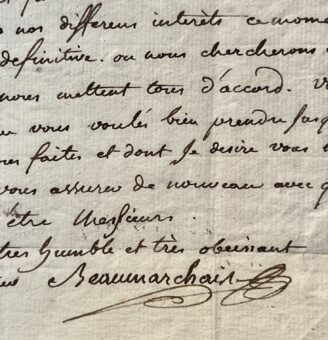 nos differens interêts ce mome
definitive. ou nous chercherons
nous mettent tous d'accord. V
vous voulés bien prendre jusq
faites et dont Je desire vous
vous assurer de nouveau avec q
être Messieurs.
tres humble et très obeissant
Beaumarchais